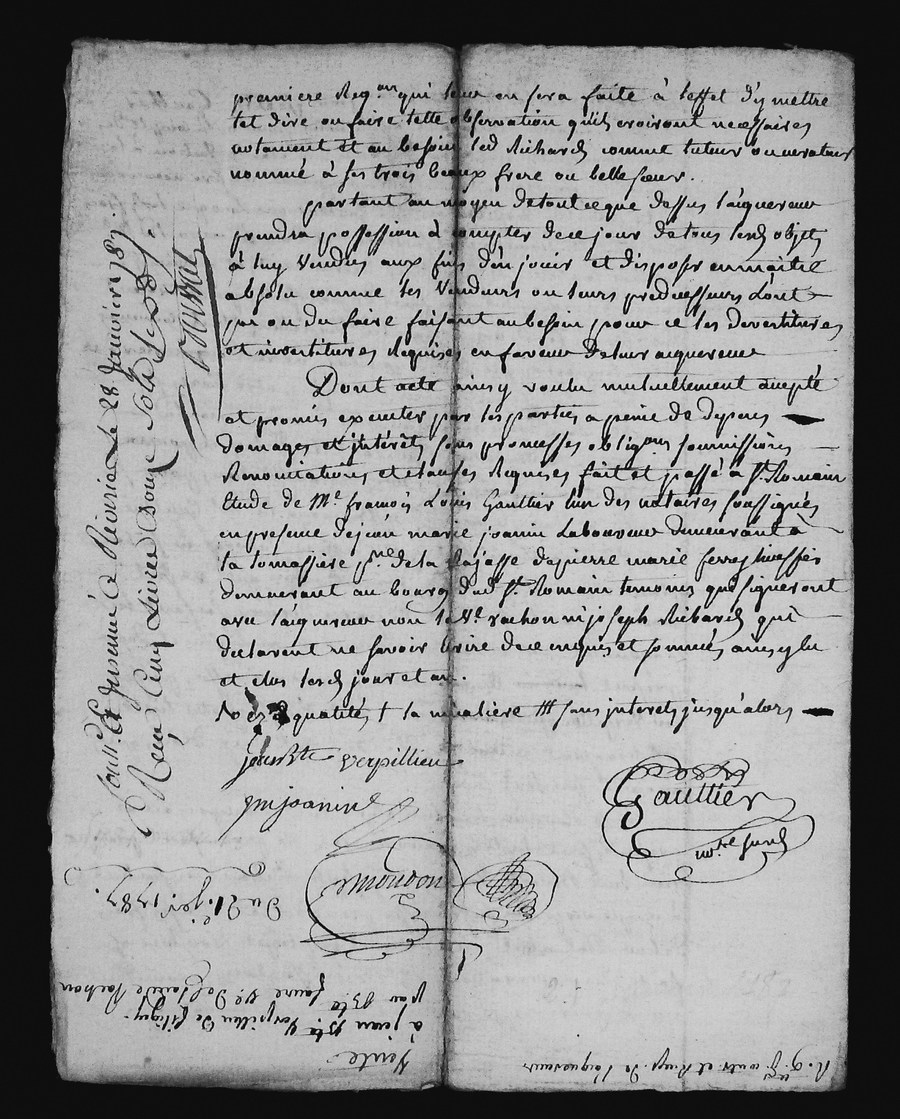 premiere Reqon qui leur en sera faite à leffet d'y mettre
tel dire ou faire telle observation quils croiront necessaires
notament et au besoin led Richard comme tuteur ou curateur
nommé à ses trois beaux frere ou belle sœur.
partant au moyen de tout ce que dessus laiquereur
prendra possession à compter de ce jour de tous lesd objets
à luy vendus aux fins d'en jouir et disposer en maitre
absolu comme les vendeurs ou leurs predecesseurs l'ont
pu ou du faire faisant au besoin pour ce les devertitures
et investitures Requises en faveur de leur aiquereur
Dont acte ainsy voulu mutuellement accepté
et promis executer par les parties a peine de depens
domages et interêts sous promesses obligons soumissions
Renonciations et clauses Requises fait et passé à St Romain
Etude de Me francois Louis Gaultier l'un des notaires soussignés
en presence de jean marie joanin Laboureur demeurant à
la tomassiere psse de la Rajasse de pierre marie ferrey
demeurant au bourg dud St Romain temoins qui signeront
avec laiquereur non la Ve rachon ni joseph Richard qui
declarent ne savoir ecrire de ce enquis et sommés ainsy lu
et clos lesd jour et an.
qualités † la miraliere ttt sans interets jusqu'alors
jean Bte verpillieu
jm joanin
Gaultier
nore Suod
moudon
Conll. Et Insinué à Rivirie Le 28 Janvier 1787.
Recu Cinq Livres Douze Sols Six Drs.
Du 21e jer. 1787.
Vente
à jean Bte Verpilieu de
par Bte faure Ve. De Claude Rachon
R. g. gse conle et Exp. De l'acquereur